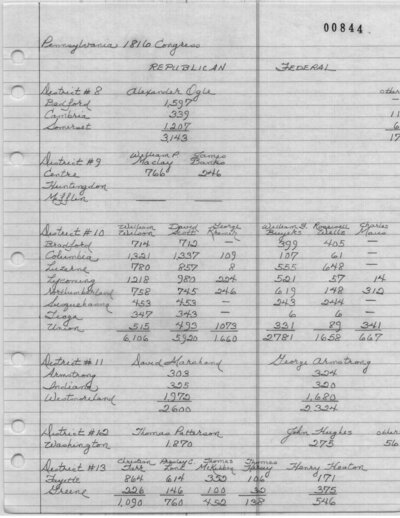 00844
Pennsylvania 1816 Congress
REPUBLICAN FEDERAL
District #8 Alexander Ogle other
Bedford 1,597
Cambria 339 11
Somerset 1,207 6
3,143 17
District #9 William P. Maclay James Banks
Centre 766 246
Huntingdon
Mifflin
District #10 William Wilson David Scott George Kremer William G. Buyers Roswell Wells Charles Maus
Bradford 714 712 — 399 405 —
Columbia 1,321 1,337 109 107 61 —
Luzerne 780 857 8 555 648 —
Lycoming 1218 980 224 521 57 14
Northumberland 758 745 246 619 148 312
Susquehanna 453 453 — 243 244 —
Tioga 347 343 — 6 6 —
Union 515 493 1073 331 89 341
6,106 5920 1660 2781 1658 667
District #11 David Marchand George Armstrong
Armstrong 303 324
Indiana 325 320
Westmoreland 1,972 1,680
2600 2,324
District #12 Thomas Patterson John Hughes other
Washington 1,870 275 56
District #13 Christian Tarr Thomas McKibben Thomas Henry Heaton
Fayette 864 614 352 106 171
Greene 226 146 100 30 375
1,090 760 452 138 546